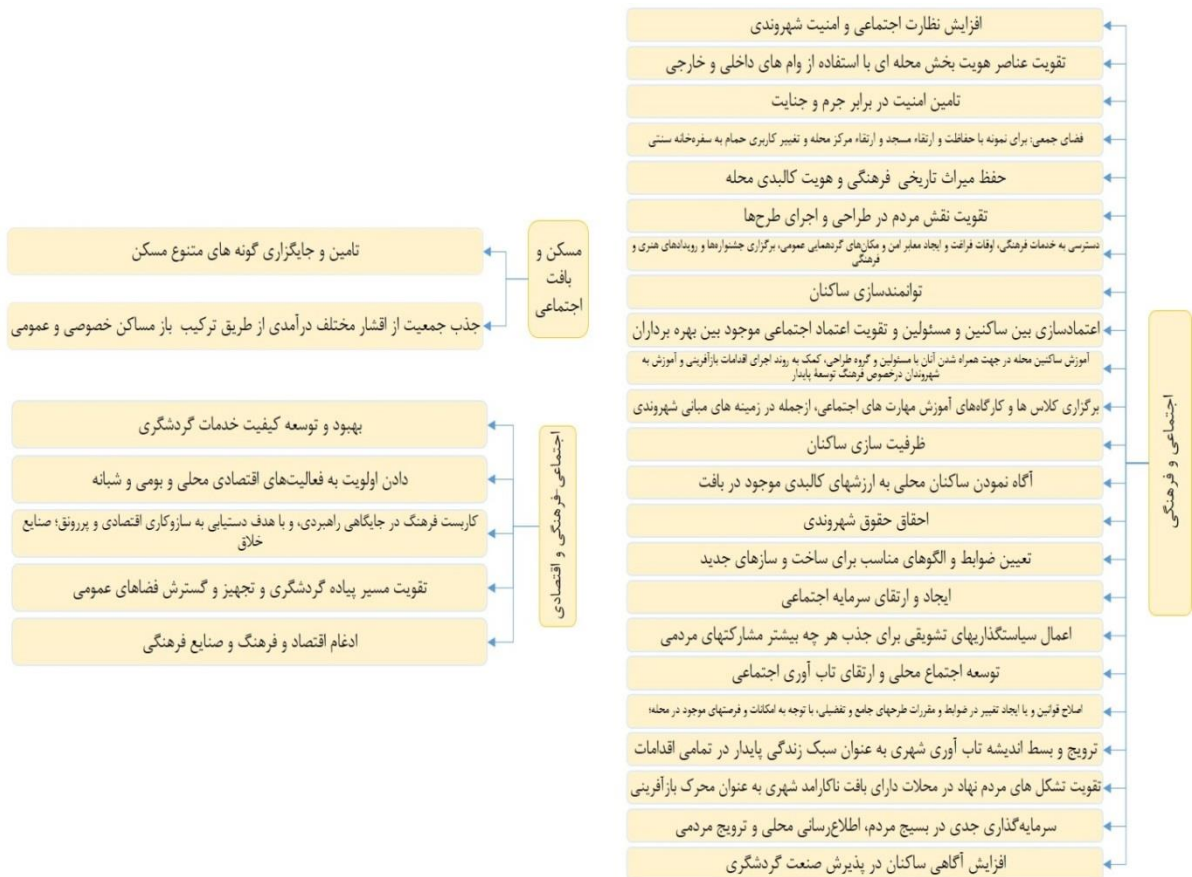 اجتماعی و فرهنگی
افزایش نظارت اجتماعی و امنیت شهروندی
تقویت عناصر هویت بخش محله ای با استفاده از وام های داخلی و خارجی
تامین امنیت در برابر جرم و جنایت
فضای جمعی: برای نمونه با حفاظت و ارتقاء مسجد و ارتقاء مرکز محله و تغییر کاربری حمام به سفره‌خانه سنتی
حفظ میراث تاریخی فرهنگی و هویت کالبدی محله
تقویت نقش مردم در طراحی و اجرای طرح‌ها
دسترسی به خدمات فرهنگی، اوقات فراغت و ایجاد معابر امن و مکان‌های گردهمایی عمومی، برگزاری جشنواره‌ها و رویدادهای هنری و
فرهنگی
توانمندسازی ساکنان
اعتمادسازی بین ساکنین و مسئولین و تقویت اعتماد اجتماعی موجود بین بهره برداران
آموزش ساکنین محله در جهت همراه شدن آنان با مسئولین و گروه طراحی، کمک به روند اجرای اقدامات بازآفرینی و آموزش به
شهروندان درخصوص فرهنگ توسعۀ پایدار
برگزاری کلاس ها و کارگاه‌های آموزش مهارت های اجتماعی، ازجمله در زمینه های مبانی شهروندی
ظرفیت سازی ساکنان
آگاه نمودن ساکنان محلی به ارزشهای کالبدی موجود در بافت
احقاق حقوق شهروندی
تعیین ضوابط و الگوهای مناسب برای ساخت و سازهای جدید
ایجاد و ارتقای سرمایه اجتماعی
اعمال سیاستگذاریهای تشویقی برای جذب هر چه بیشتر مشارکتهای مردمی
توسعه اجتماع محلی و ارتقای تاب آوری اجتماعی
اصلاح قوانین و یا ایجاد تغییر در ضوابط و مقررات طرحهای جامع و تفضیلی، با توجه به امکانات و فرصتهای موجود در محله؛
ترویج و بسط اندیشه تاب آوری شهری به عنوان سبک زندگی پایدار در تمامی اقدامات
تقویت تشکل های مردم نهاد در محلات دارای بافت ناکارامد شهری به عنوان محرک بازآفرینی
سرمایه‌گذاری جدی در بسیج مردم، اطلاع‌رسانی محلی و ترویج مردمی
افزایش آگاهی ساکنان در پذیرش صنعت گردشگری
مسکن و
بافت
اجتماعی
تامین و جایگزاری گونه های متنوع مسکن
جذب جمعیت از اقشار مختلف درآمدی از طریق ترکیب باز مساکن خصوصی و عمومی
اجتماعی-فرهنگی و اقتصادی
بهبود و توسعه کیفیت خدمات گردشگری
دادن اولویت به فعالیت‌های اقتصادی محلی و بومی و شبانه
کاربست فرهنگ در جایگاهی راهبردی، و با هدف دستیابی به سازوکاری اقتصادی و پررونق؛ صنایع
خلاق
تقویت مسیر پیاده گردشگری و تجهیز و گسترش فضاهای عمومی
ادغام اقتصاد و فرهنگ و صنایع فرهنگی